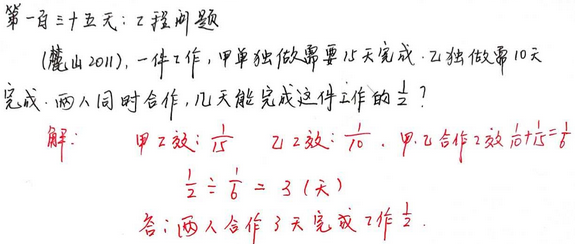 第一百三十五天：工程问题
(麓山2011)，一件工作，甲单独做需要15天完成．乙独做需10天
完成．两人同时合作，几天能完成这件工作的1/2？
解：甲工效：1/15 乙工效：1/10．甲．乙合作工效1/10+1/15=1/6
1/2÷1/6=3(天)
答：两人合作3天完成工作1/2．